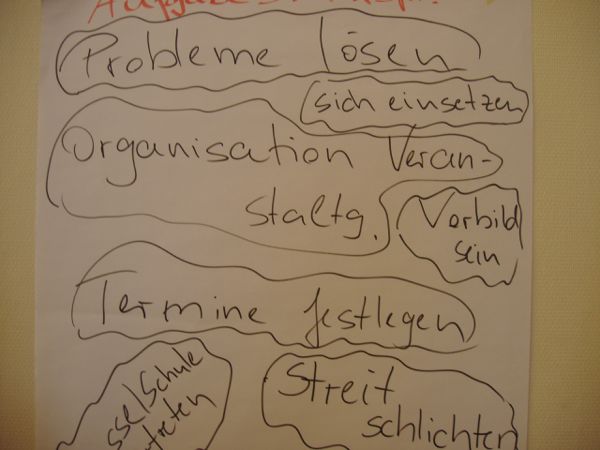 Probleme lösen
sich einsetzen
Organisation Veran-
staltg.
Vorbild
sein
Termine festlegen
Streit
schlichten